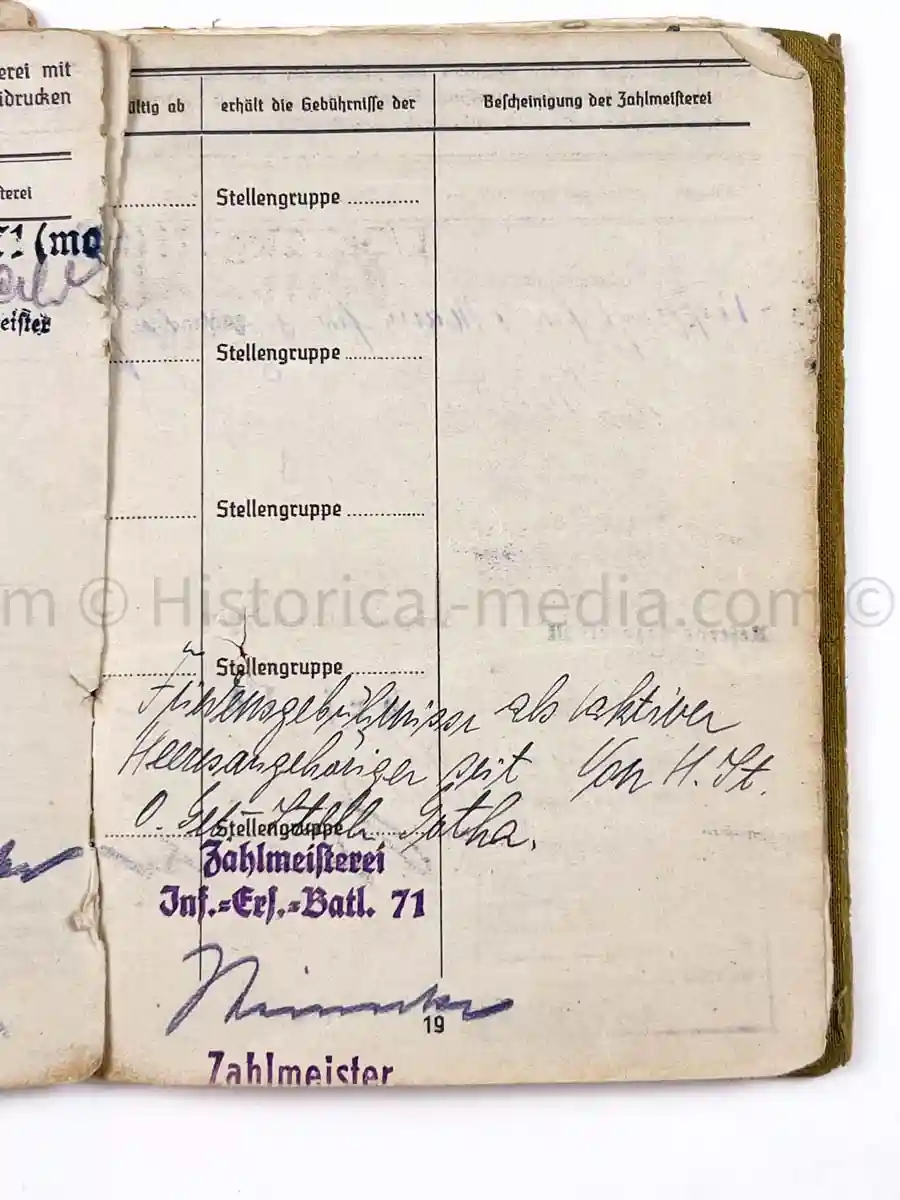 erei mit
idrucken
terei
71 (mo
eister
ültig ab
erhält die Gebührnisse der
Bescheinigung der Zahlmeisterei
Stellengruppe
Stellengruppe
Stellengruppe
m © Historical-media.com ©
Stellengruppe
Friedensgebührnisse als aktiver
Heeresangehöriger seit Von H. St.
O. Geb. Stelle Gotha.
Stellengruppe
Zahlmeisterei
Inf.=Ers.=Batl. 71
19
Zahlmeister